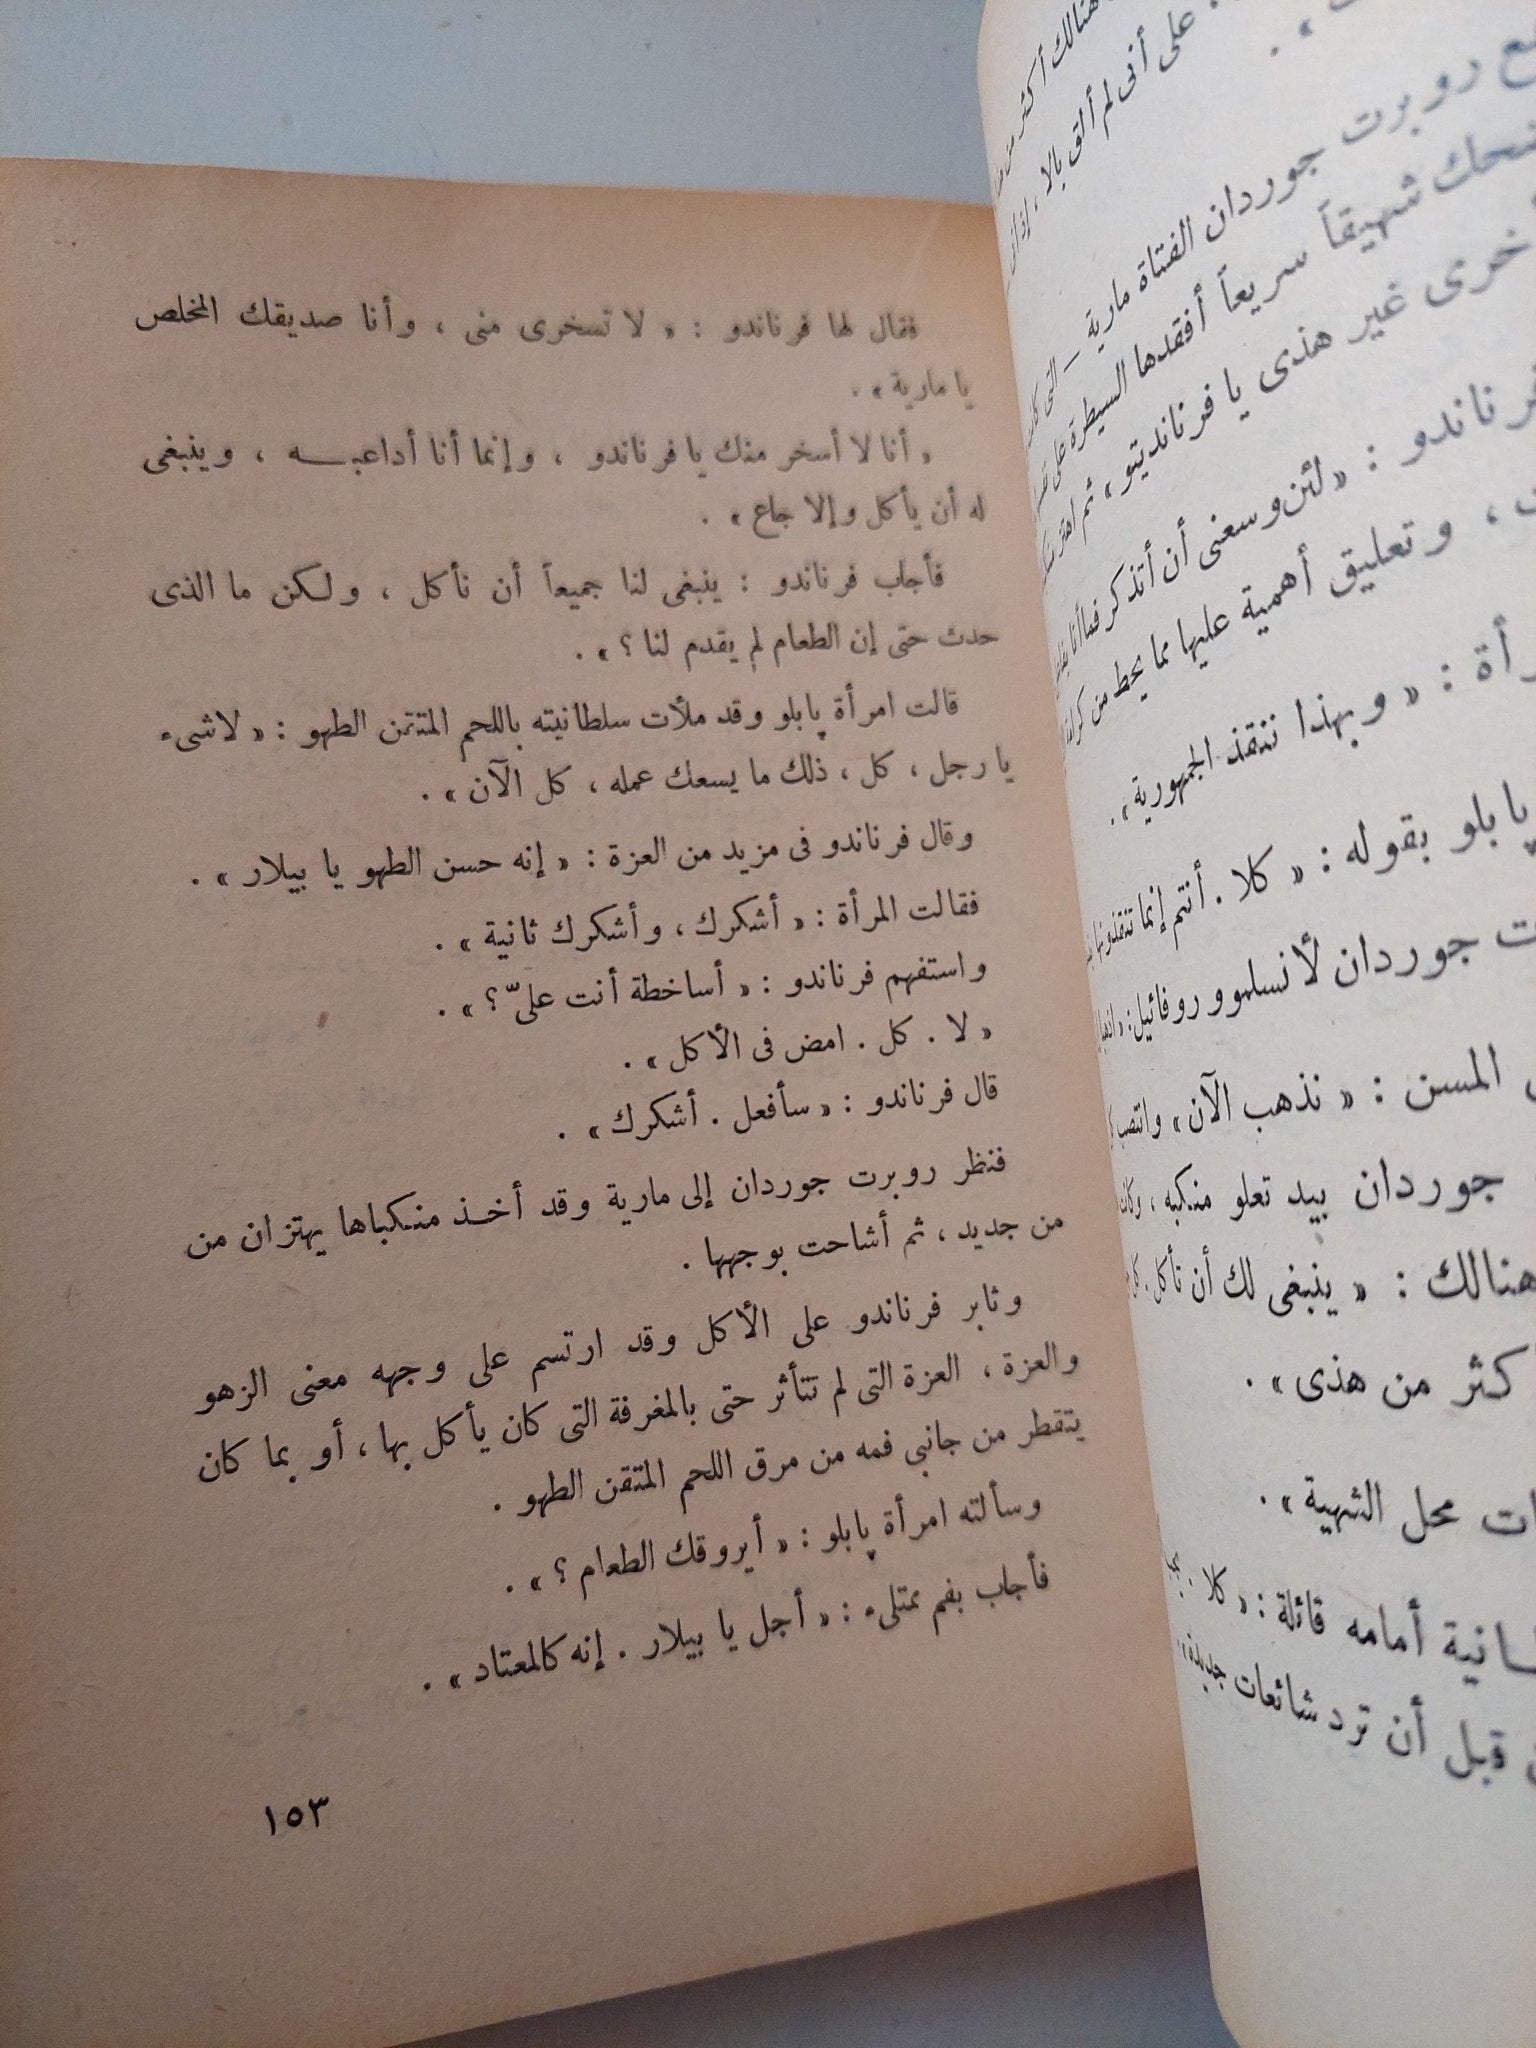 هنالك أكثر من
على أنى لم ألق بالا ، إذ أن
روبرت جوردان الفتاة مارية — التى
شهيقاً سريعاً أفقدها السيطرة على
أخرى غير هذى يا فرنانديتو » ثم
فرناندو : « لئن وسعنى أن أتذكر فما أنا
، وتعليق أهمية عليها مما يحط من
: « وبهذا ننقذ الجمهورية » .
پابلو بقوله : « كلا . أنتم إنما تنقذونها
جوردان لأنسلمو وروفائيل : «
المسن : « نذهب الآن » وانتصب
جوردان بيد تعلو منكبه ، وكان
هنالك : « ينبغى لك أن تأكل . كل
أكثر من هذى » .
محل الشهية » .
أمامه قائلة : « كلا .
قبل أن ترد شائعات جديدة
فقال لها فرناندو : « لا تسخرى منى ، وأنا صديقك المخلص
يا مارية » .
« أنا لا أسخر منك يا فرناندو ، وإنما أنا أداعبـــه ، وينبغى
له أن يأكل وإلا جاع » .
فأجاب فرناندو : ينبغى لنا جميعاً أن نأكل ، ولكن ما الذى
حدث حتى إن الطعام لم يقدم لنا ؟ » .
قالت امرأة پابلو وقد ملأت سلطانيته باللحم المتقن الطهو : « لا شىء
يا رجل ، كل ، ذلك ما يسعك عمله ، كل الآن » .
وقال فرناندو فى مزيد من العزة : « إنه حسن الطهو يا بيلار » .
فقالت المرأة : « أشكرك ، وأشكرك ثانية » .
واستفهم فرناندو : « أساخطة أنت علىّ ؟ » .
« لا . كل . امض فى الأكل » .
قال فرناندو : « سأفعل . أشكرك » .
فنظر روبرت جوردان إلى مارية وقد أخـذ منكباها يهتزان من
من جديد ، ثم أشاحت بوجهها .
وثابر فرناندو على الأكل وقد ارتسم على وجهه معنى الزهو
والعزة ، العزة التى لم تتأثر حتى بالمغرفة التى كان يأكل بها ، أو بما كان
يتقطر من جانبى فمه من مرق اللحم المتقن الطهو .
وسألته امرأة پابلو : « أيروقك الطعام ؟ » .
فأجاب بفم ممتلىء : « أجل يا بيلار . إنه كالمعتاد » .
١٥٣